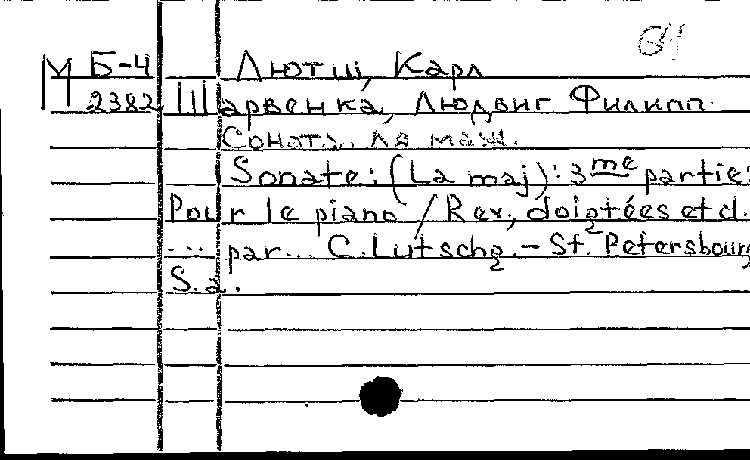 М Б-4 Лютш, Карл
2382 Шарвенка, Людвиг Филипп.
Соната, ля маж.
Sonate: (La maj): 3me partie:
Pour le piano / Rev, doigtées et d.
... par... C. Lutschg. - St. Petersbourg
S.a.